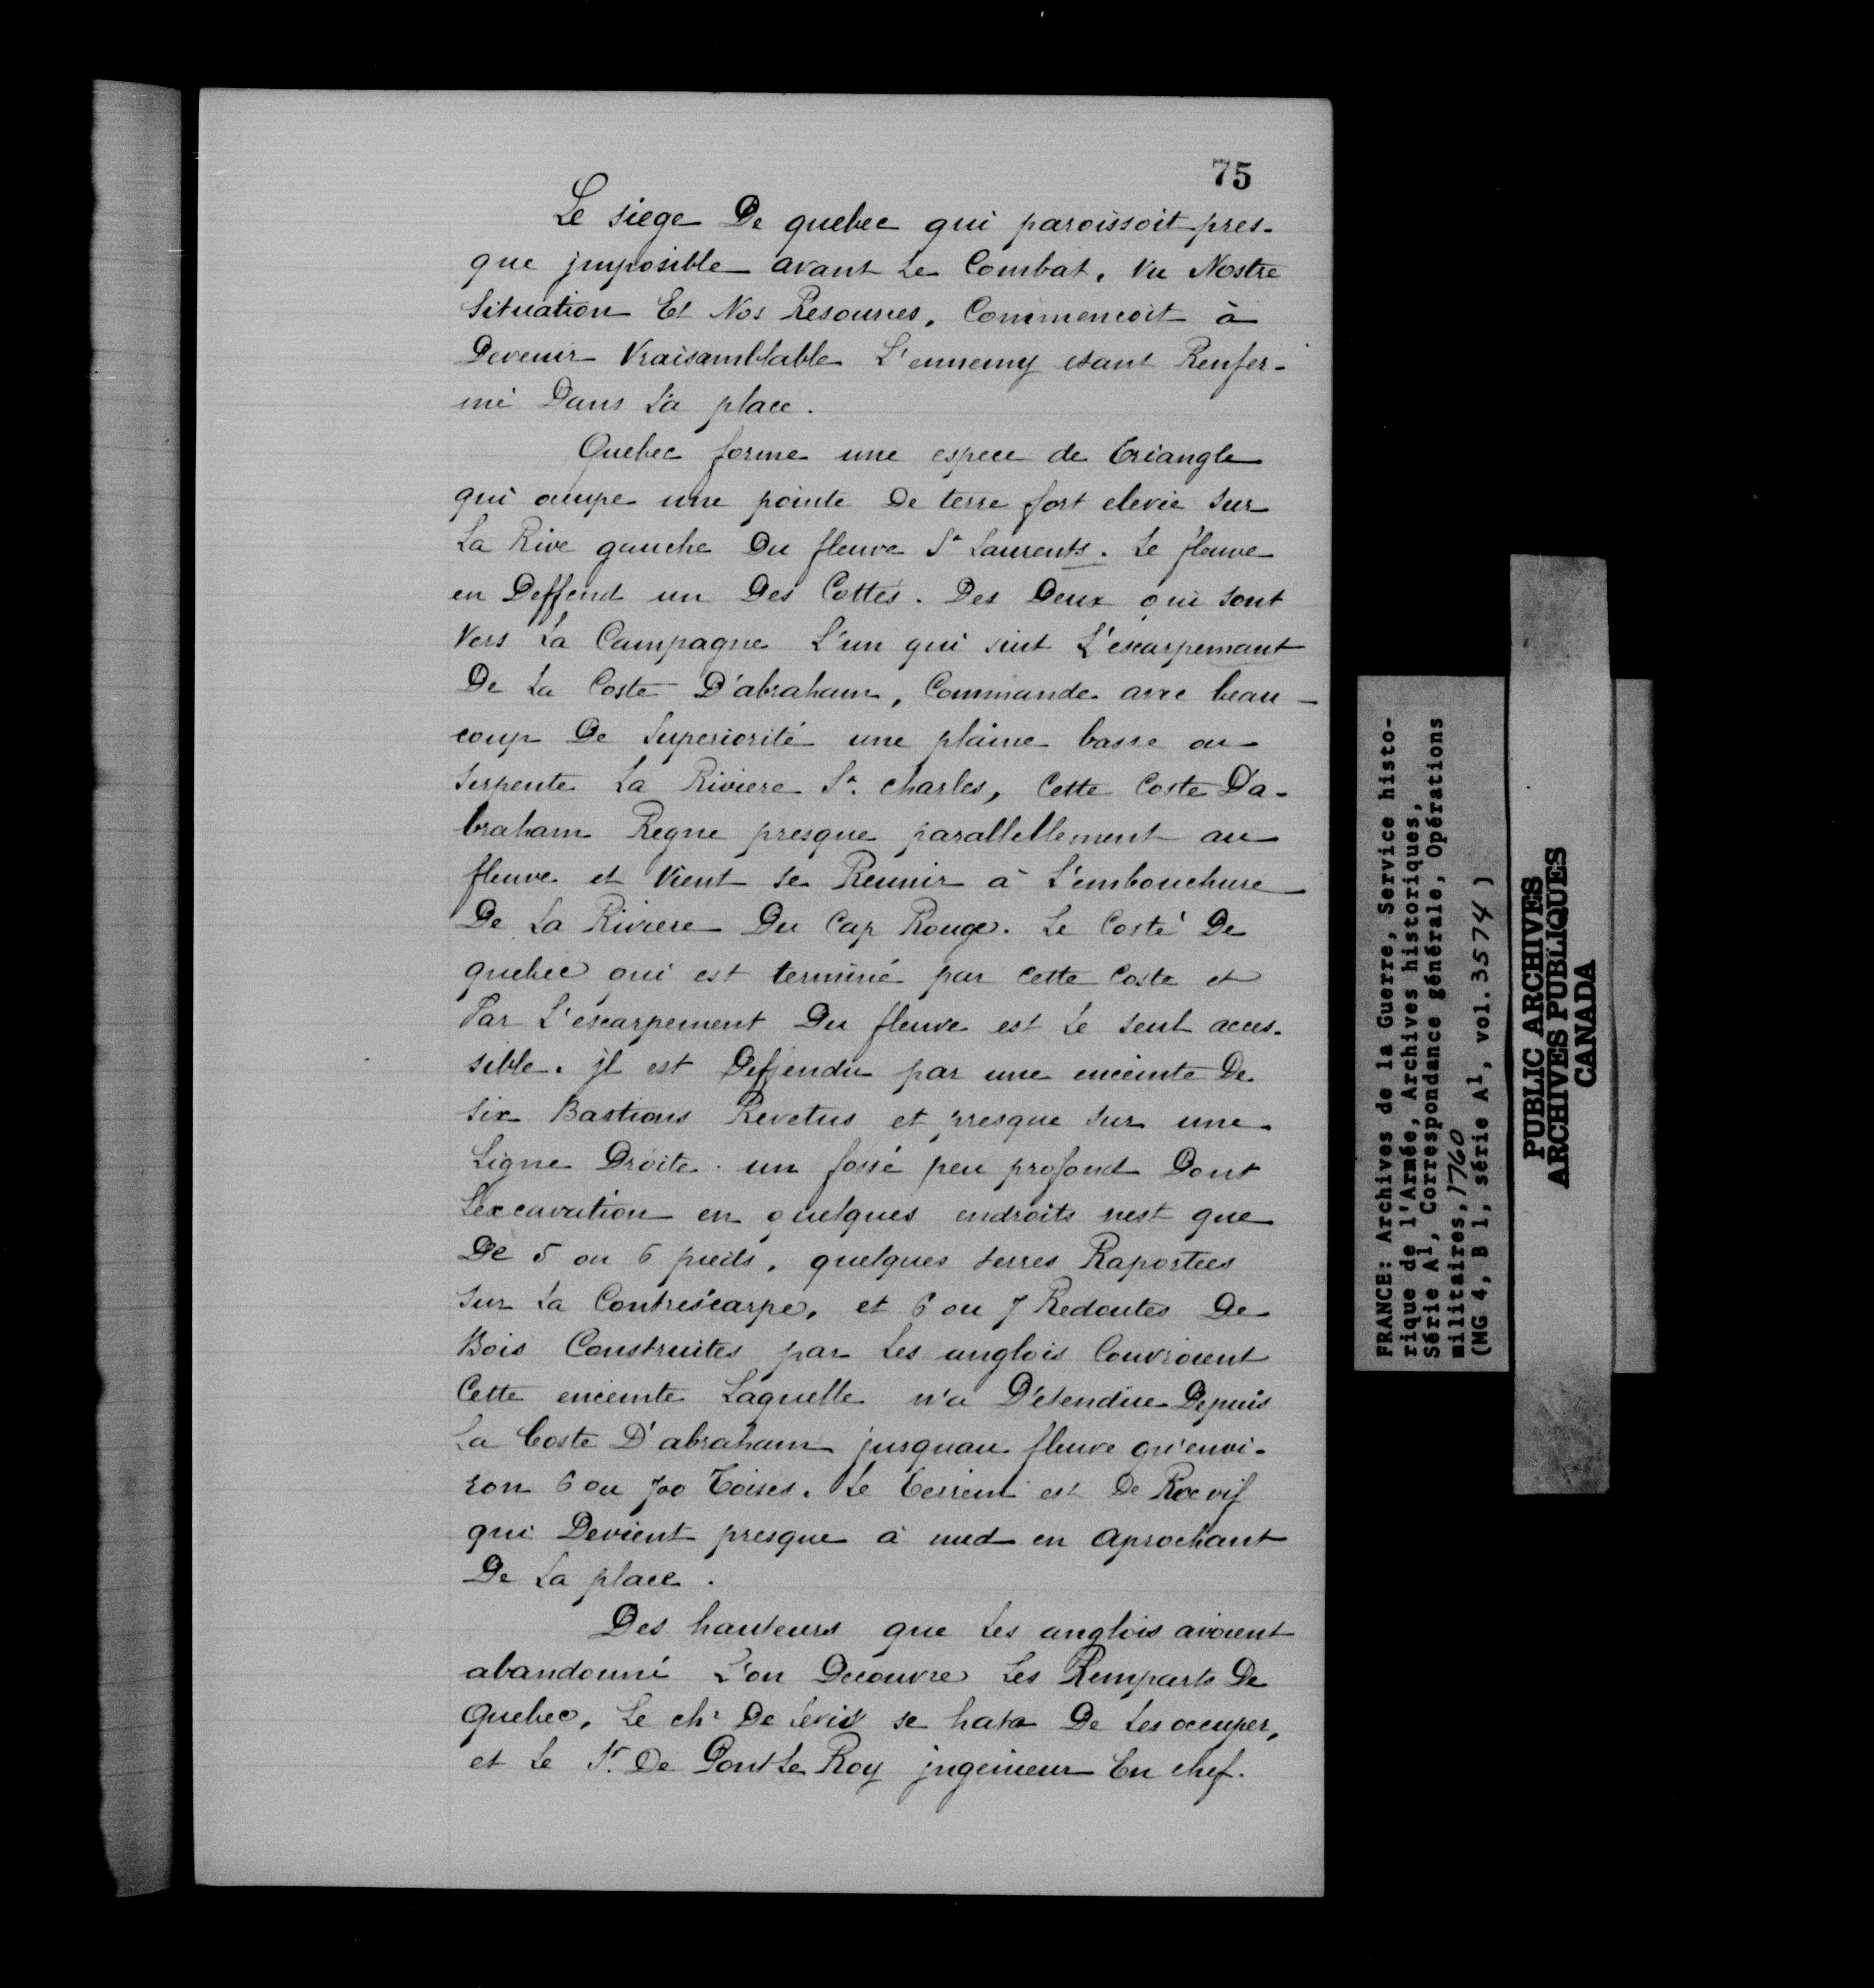 75
Le siege De quebec qui paroissoit pres-
que jmposible avant Le Combat, Vu Nostre
Situation Et Nos Resources, Commencoit à
Devenir Vraisamblable L'ennemy etant Renfer-
mé Dans La place.
Quebec forme une espece de triangle
qui ocupe une pointe De terre fort elevée sur
La Rive gauche Du fleuve St Laurents. Le fleuve
en Deffend un Des Cottés. Des Deux qui sont
Vers La Campagne L'un qui suit L'escarpemant
De La Coste D'abraham, Commande avec beau-
coup De Superiorité une plaine basse ou
serpente La Riviere St. charles, Cette Coste D'a-
braham Regne presque parallellement au
fleuve et Vient se Reunir à L'embouchure
De La Riviere Du Cap Rouge. Le Costé De
quebec qui est terminé par Cette Coste et
Par L'escarpement Du fleuve est Le seul acces-
sible. jl est Deffendu par une enceinte De
six Bastions Revetus et presque sur une
Ligne Droite. un fossé peu profond Dont
L'excavation en quelques endroits nest que
De 5 ou 6 pieds, quelques terres Raportees
sur La Contrescarpe, et 6 ou 7 Redoutes De
Bois Construites par Les anglois Couvroient
Cette enceinte Laquelle n'a D'etendue Depuis
La Coste D'abraham jusquau fleuve qu'envi-
ron 6 ou 700 Toises. Le terrein est De Roc vif
qui Devient presque à nud en aprochant
De La place.
Des hauteurs que Les anglois avoient
abandonné L'on Decouvre Les Remparts De
Quebec, Le chr De Levis se hata De Les occuper,
et Le Sr. De Pont Le Roy jngenieur En chef.
FRANCE: Archives de la Guerre, Service histo-
rique de l'Armée, Archives historiques,
Série A1, Correspondance générale, Opérations
militaires, 1760
(MG 4, B 1, série A1, vol. 3574 )
PUBLIC ARCHIVES
ARCHIVES PUBLIQUES
CANADA